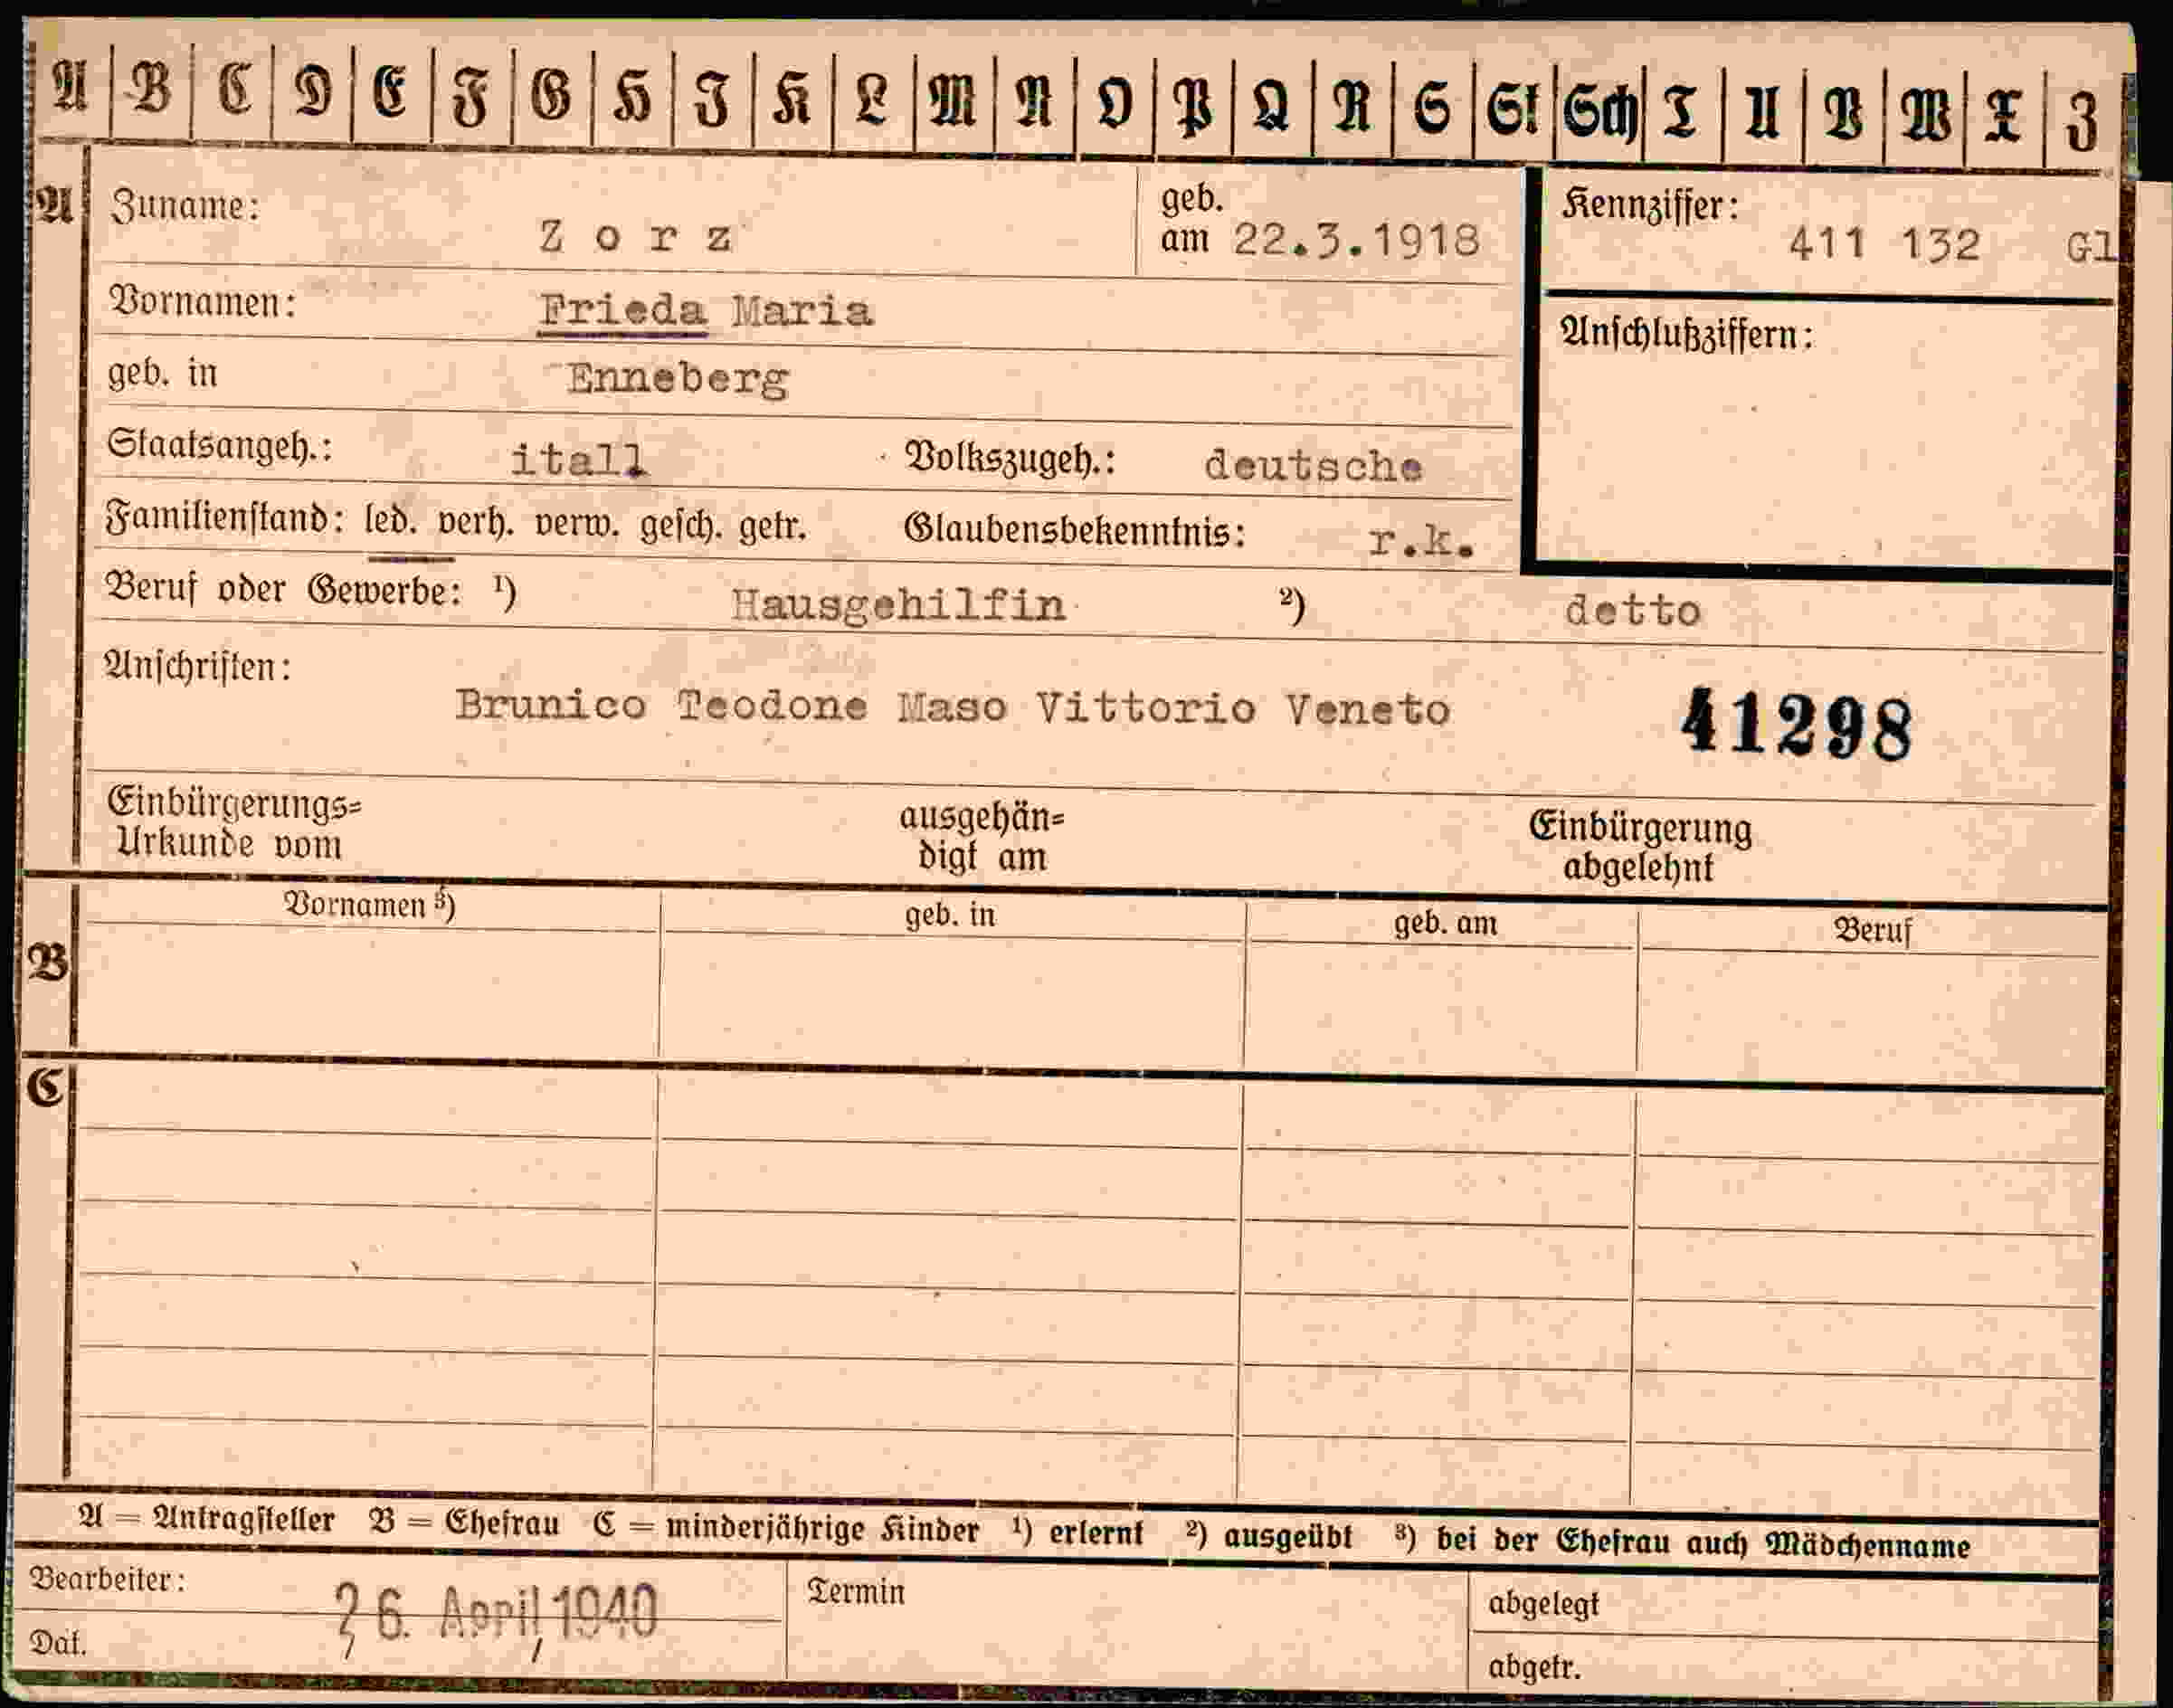 A B C D E F G H I K L M N O P Q R S St Sch T U V W X Z
A
Zuname: Zorz geb. am 22.3.1918 Kennziffer: 411 132 Gl
Vornamen: Frieda Maria Anschlußziffern:
geb. in Enneberg
Staatsangeh.: itall Volkszugeh.: deutsche
Familienstand: led. verh. verw. gesch. getr. Glaubensbekenntnis: r.k.
Beruf oder Gewerbe: ¹) Hausgehilfin ²) detto
Anschriften:
Brunico Teodone Maso Vittorio Veneto 41298
Einbürgerungs= ausgehän= Einbürgerung
Urkunde vom digt am abgelehnt
B
Vornamen ³) geb. in geb. am Beruf
C
A = Antragsteller B = Ehefrau C = minderjährige Kinder ¹) erlernt ²) ausgeübt ³) bei der Ehefrau auch Mädchenname
Bearbeiter: Termin abgelegt
26. April 1940
Dat. abgetr.